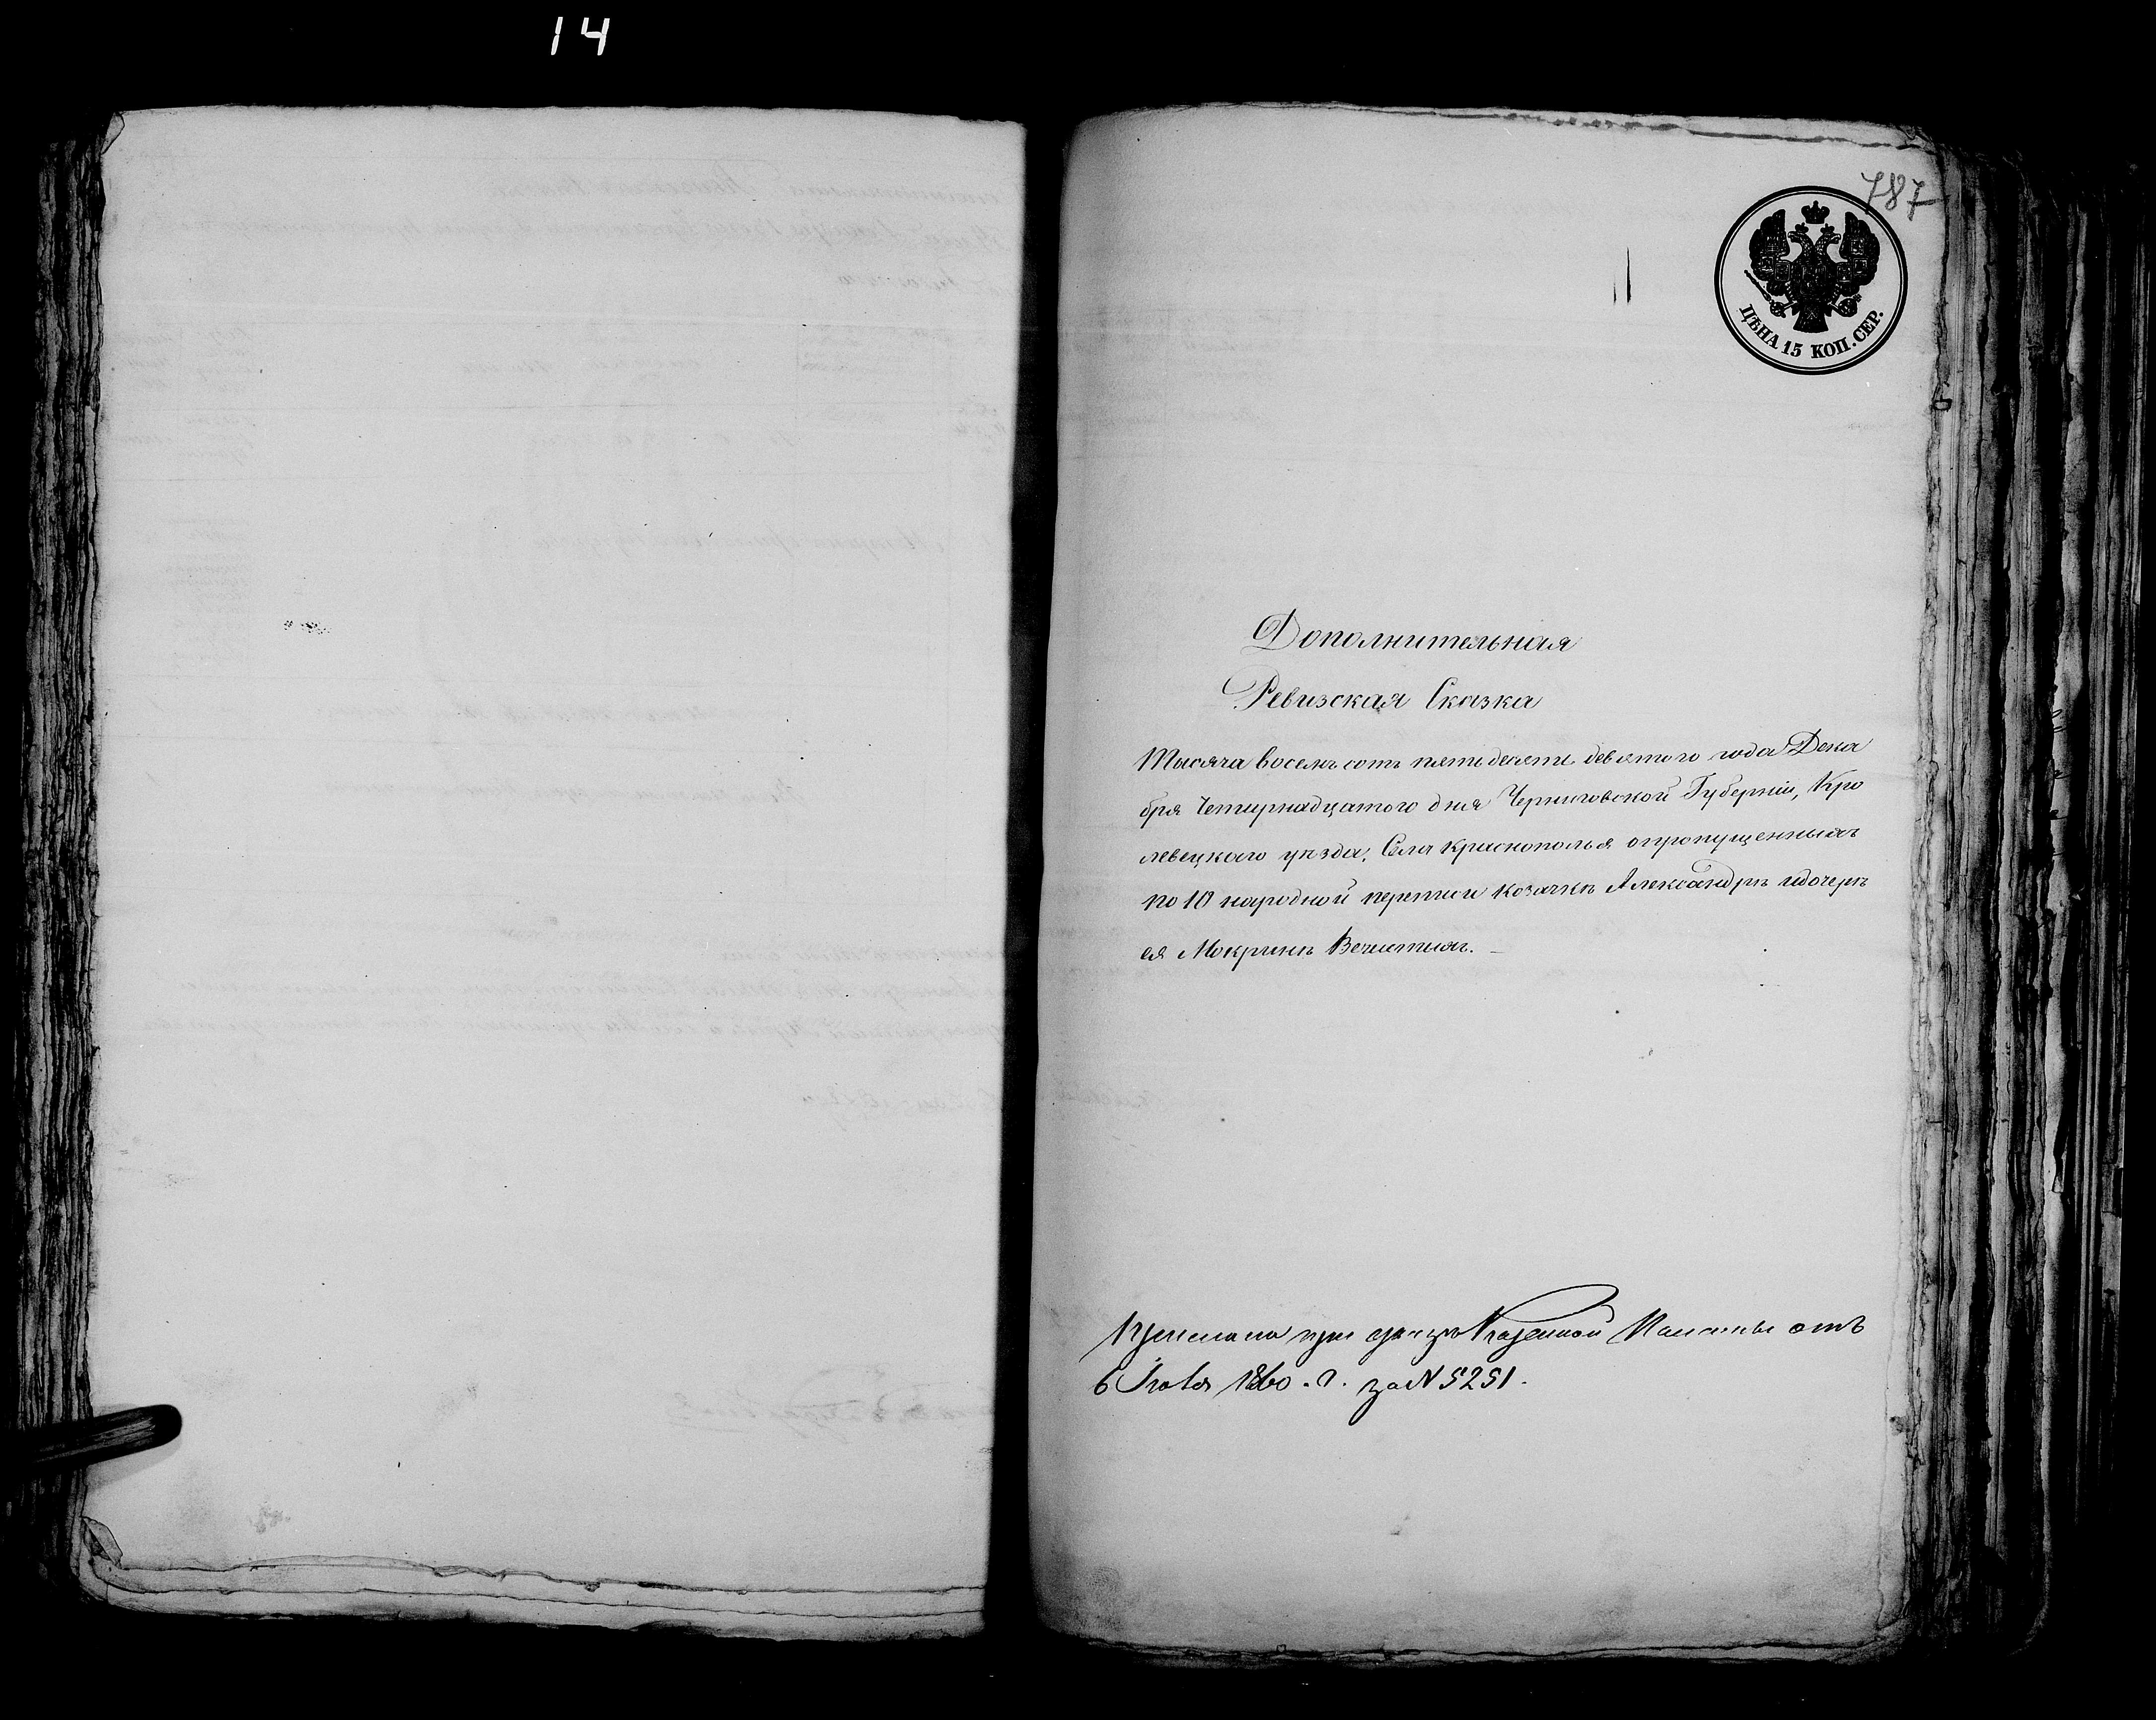 14
787
ЦѢНА 15 КОП. СЕР.
Дополнительная
Ревизская Сказка
Тысяча восемъ сотъ пятьдесятъ девятого года Дека
бря Четырнадцатого дня Черниговской Губерніи, Кро
левецкаго уѣзда, Села Краснополья о пропущенныхъ
по 10 народной переписи козачкѣ Александрѣ и дочерѣ
ея Мокринѣ
при Казенной Палаты отъ
6 1860. г. за № 5251.